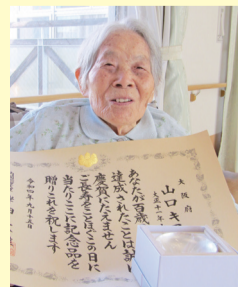 大阪府
山口キ
大正十一年
あなたが百歳
達成されたことは誠に
慶賀にたえません
ご長寿をことほぐこの日に
当たりここに記念品を
贈りこれを祝します
令和四年九月十五日